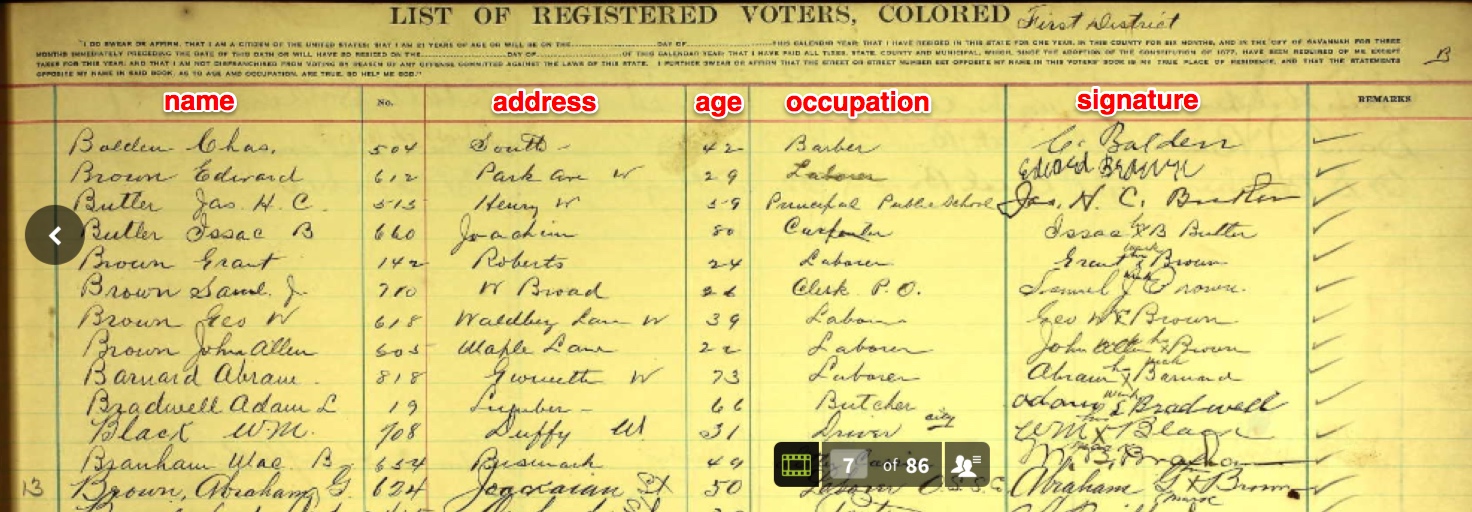 LIST OF REGISTERED VOTERS, COLORED First District
"I DO SWEAR OR AFFIRM, THAT I AM A CITIZEN OF THE UNITED STATES; THAT I AM 21 YEARS OF AGE OR WILL BE ON THE DAY OF THIS CALENDAR YEAR; THAT I HAVE RESIDED IN THIS STATE FOR ONE YEAR, IN THIS COUNTY FOR SIX MONTHS, AND IN THE CITY OF SAVANNAH FOR THREE
MONTHS IMMEDIATELY PRECEDING THE DATE OF THIS OATH OR WILL HAVE SO RESIDED ON THE DAY OF OF THIS CALENDAR YEAR; THAT I HAVE PAID ALL TAXES, STATE, COUNTY AND MUNICIPAL, WHICH, SINCE THE ADOPTION OF THE CONSTITUTION OF 1877, HAVE BEEN REQUIRED OF ME EXCEPT
TAXES FOR THIS YEAR; AND THAT I AM NOT DISFRANCHISED FROM VOTING BY REASON OF ANY OFFENSE COMMITTED AGAINST THE LAWS OF THIS STATE. I FURTHER SWEAR OR AFFIRM THAT THE STREET OR STREET NUMBER SET OPPOSITE MY NAME IN THIS VOTERS' BOOK IS MY TRUE PLACE OF RESIDENCE, AND THAT THE STATEMENTS
OPPOSITE MY NAME IN SAID BOOK, AS TO AGE AND OCCUPATION, ARE TRUE, SO HELP ME GOD."
B
name No. address age occupation signature REMARKS
Bolden Chas. 504 South 42 Barber C. Bolden
Brown Edward 612 Park Ave W 29 Laborer Edward Brown
Butler Jas. H. C. 515 Henry W 59 Principal Public School Jas. H. C. Butler
Butler Issac B 660 Joachim 80 Carpenter Issac X B Butler
Brown Grant 142 Roberts 24 Laborer Grant X Brown
Brown Saml. J. 710 W Broad 26 Clerk P.O. Samuel J Brown.
Brown Geo W 618 Waldburg Lane W 39 Laborer Geo W X Brown
Brown John Allen 605 Maple Lane 22 Laborer John Allen X Brown
Barnard Abram 818 Gwinnett W 73 Laborer Abram X Barnard
Bradwell Adam L 19 Lumber 66 Butcher Adam L Bradwell
Black WM. 708 Duffy W 31 Driver city WM X Black
Branham Wac B 654 Bismark 49
7 of 86
13 Brown, Abraham G. 624 St 50 Laborer O.S.S.Co Abraham G X Brown